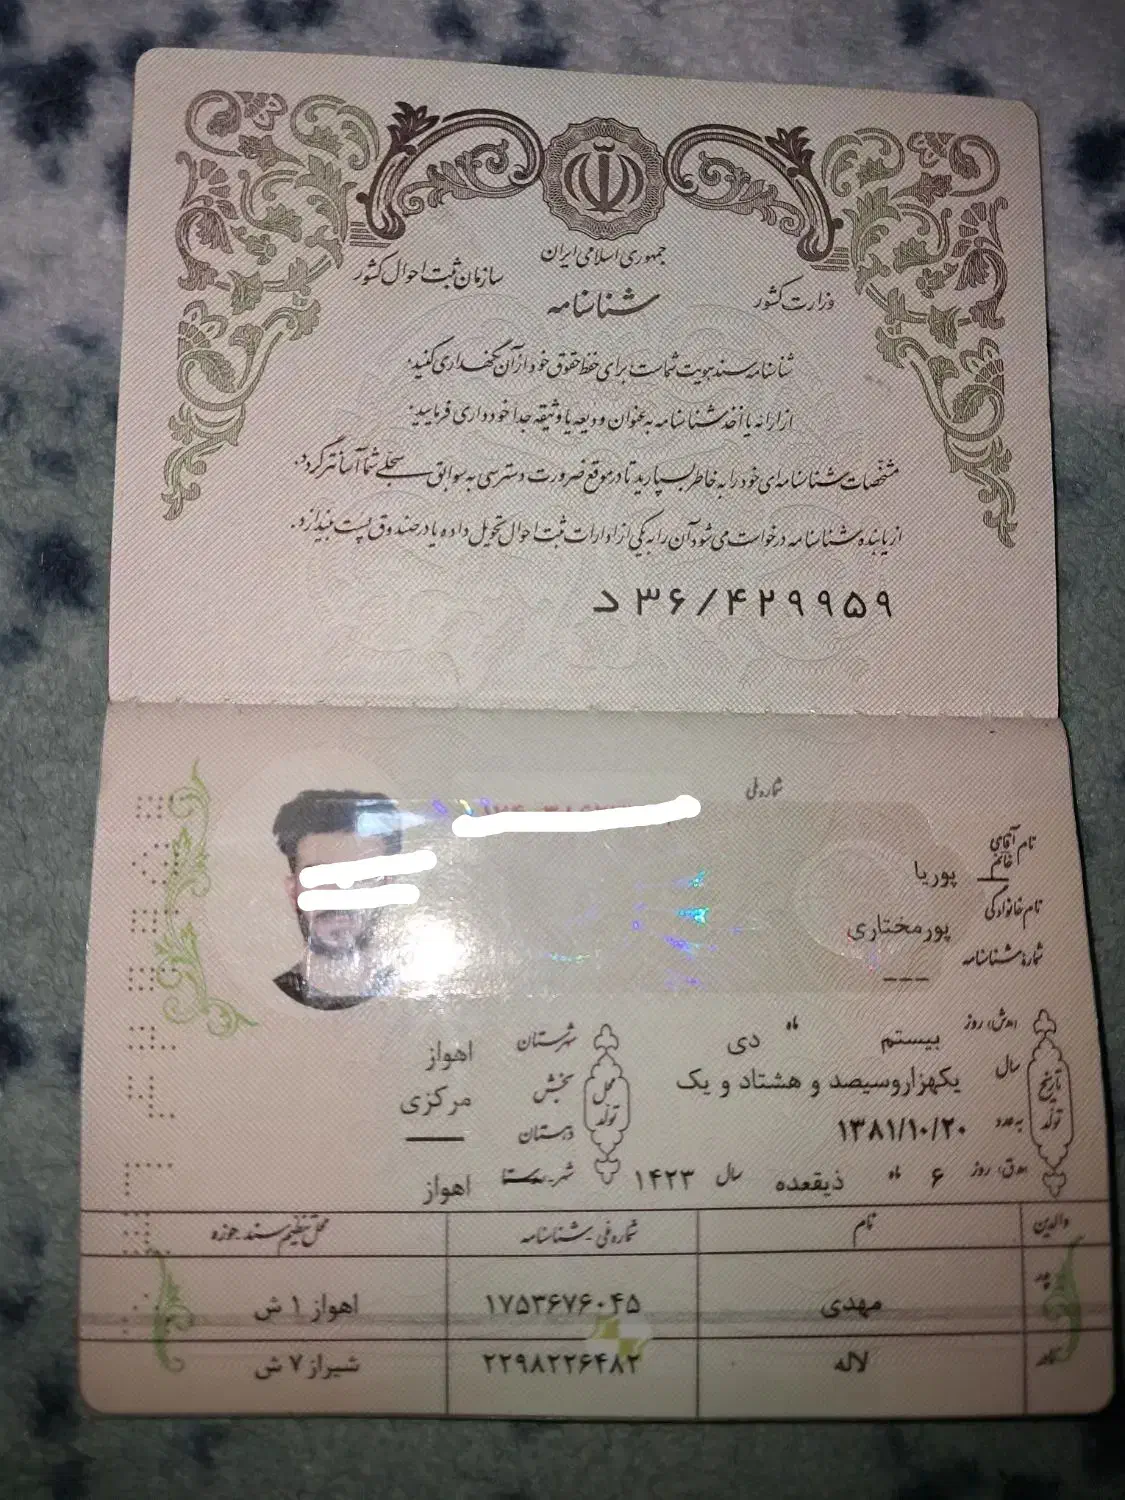 جمهوری اسلامی ایران
وزارت کشور
سازمان ثبت احوال کشور
شناسنامه
شناسنامه سند هویت شماست برای حفظ حقوق خود از آن نگهداری کنید.
از ارائه یا اخذ شناسنامه به عنوان ودیعه یا وثیقه جدا خودداری فرمایید.
مشخصات شناسنامه‌ای خود را به خاطر بسپارید تا در موقع ضرورت دسترسی به سوابق سجلی شما آسانتر گردد.
از یابنده شناسنامه درخواست می‌شود آن را به یکی از ادارات ثبت احوال تحویل داده یا در صندوق پست بیندازد.
د ۳۶/۴۲۹۹۵۹
شماره ملی
نام آقای خانم پوریا
نام خانوادگی پورمختاری
شماره شناسنامه ---
تاریخ تولد
(ه.ش) روز بیستم ماه دی
سال یکهزاروسیصد و هشتاد و یک
به عدد ۱۳۸۱/۱۰/۲۰
(ه.ق) روز ۶ ماه ذیقعده سال ۱۴۲۳
محل تولد
شهرستان اهواز
بخش مرکزی
دهستان —
شهر اهواز
والدین نام شماره ملی - شناسنامه محل تنظیم سند - حوزه
پدر مهدی ۱۷۵۳۶۷۶۰۴۵ اهواز ۱ ش
مادر لاله ۲۲۹۸۲۲۶۴۸۲ شیراز ۷ ش